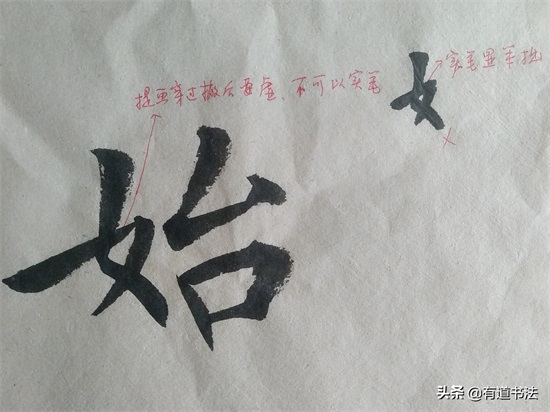 提画穿过撇后要虚、不可以实笔
女
实笔显笨拙
×
始
头条@有道书法